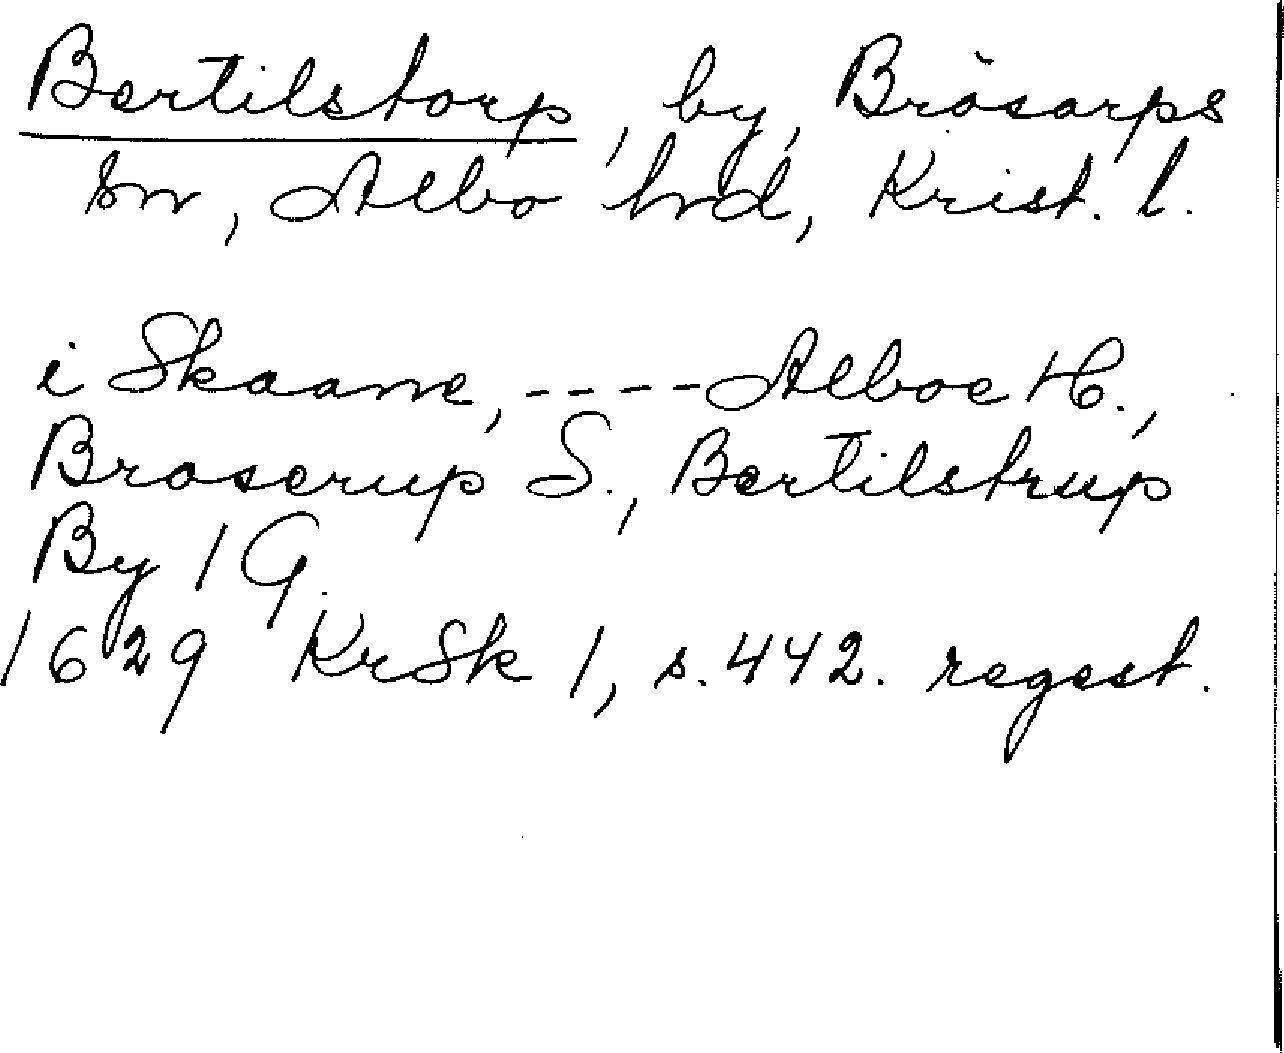 Bertilstorp, by, Brösarps
sn, Albo hrd, Krist. l.
i Skaane, ---- Alboe H.,
Broserup S., Bertilstrup
By 1 G.
1629 KrSk 1, s. 442. regest.